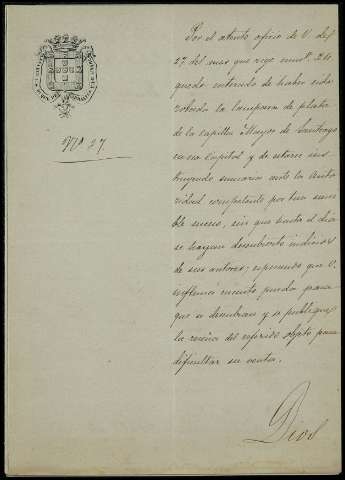 Nº 27.
Por el atento oficio de V. del
27 del mes que rige numº 26
quedo enterado de haber sido
robada la lampara de plata
de la capilla Mayor de Santiago
en esa Capital y de estarse ins
truyendo sumario ante la Auto
ridad competente por tan sensi
ble suceso, sin que hasta el dia
se hayan descubierto indicios
de sus autores; esperando que V.
cuanto pueda para
que se descubran y se publique
la reseña del referido objeto para
dificultar su venta.
Dios